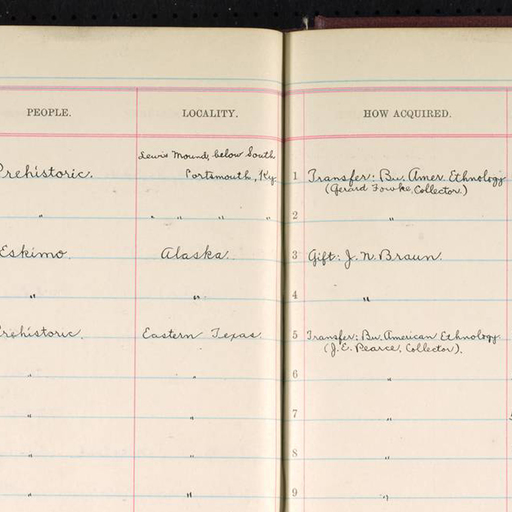 PEOPLE. LOCALITY. HOW ACQUIRED.
Lewis Mound, below South
Prehistoric. Portsmouth, Ky 1 Transfer: Bu. Amer. Ethnology
(Gerard Fowke, Collector)
" " " " " 2 "
Eskimo. Alaska. 3 Gift: J. N. Braun.
" " 4 "
Prehistoric. Eastern Texas. 5 Transfer: Bu. American Ethnology
(J. E. Pearce, Collector).
" " 6 "
" " 7 "
" " 8 "
" " 9 "